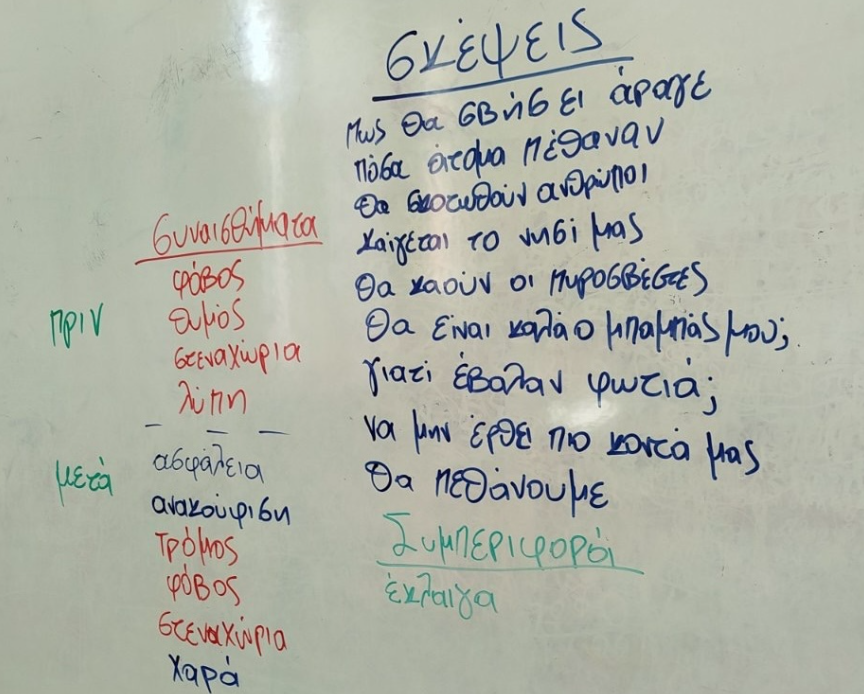 σκέψεις
Πως θα σβήσει άραγε
πόσα άτομα πέθαναν
Θα σκοτωθούν ανθρώποι
καίγεται το νησί μας
Θα καούν οι πυροσβέστες
Θα είναι καλά ο μπαμπάς μου;
γιατί έβαλαν φωτιά;
να μην έρθει πιο κοντά μας
Θα πεθάνουμε
Συμπεριφορές
έκλαιγα
συναισθήματα
πριν
φόβος
θυμός
στεναχώρια
λύπη
μετά
ασφάλεια
ανακούφιση
τρόμος
φόβος
στεναχώρια
χαρά